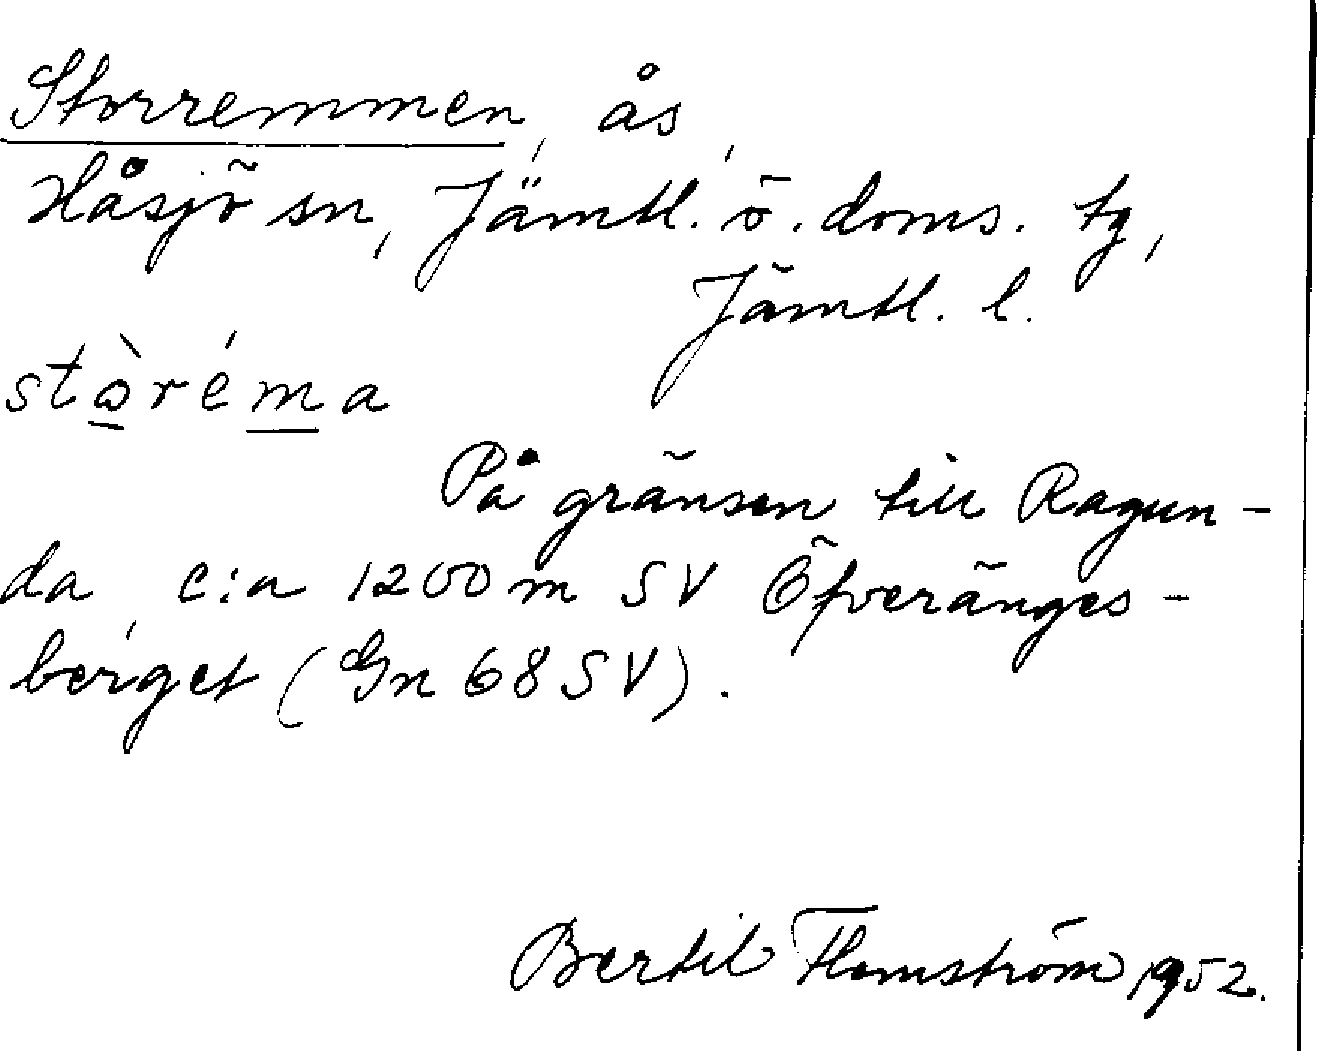 Storremmen, ås,
Håsjö sn, Jämtl. ö. doms. tg,
Jämtl. l.
stòréma
På gränsen till Ragun-
da, c:a 1200 m SV Öfveränges-
berget (Gn 68 SV).
Bertil Flemström 1952.